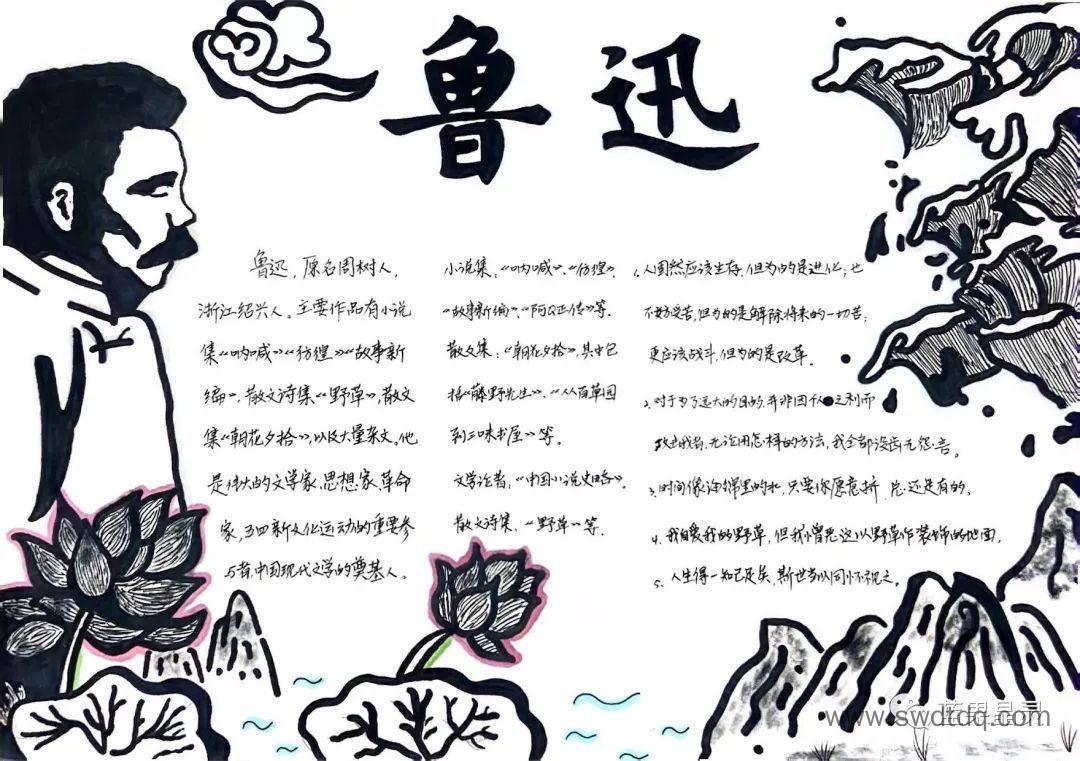 鲁迅
鲁迅，原名周树人，
浙江绍兴人。主要作品有小说
集《呐喊》《彷徨》《故事新
编》，散文诗集《野草》，散文
集《朝花夕拾》，以及大量杂文。他
是伟大的文学家、思想家、革命
家，五四新文化运动的重要参
与者，中国现代文学的奠基人。
小说集、《呐喊》、《彷徨》、
《故事新编》、《阿Q正传》等。
散文集：《朝花夕拾》，其中包
括《藤野先生》、《从百草园
到三味书屋》等。
文学论者：《中国小说史略》。
散文诗集、《野草》等.
1.人固然应该生存，但为的是进化；也
不妨受苦，但为的是解除将来的一切苦；
更应该战斗，但为的是改革。
2.对于为了远大的目的，并非因个人之利而
攻击我者，无论用怎样的方法，我全部没齿无怨言。
3.时间像海绵里的水，只要你愿意挤，总还是有的。
4.我自爱我的野草，但我憎恶这以野草作装饰的地面。
5.人生得一知己足矣，斯世当以同怀视之。
www.swdtdq.com